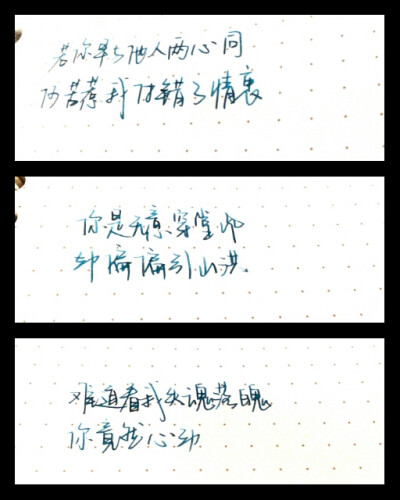 若你早与他人两心同
何苦惹我付错了情衷
你是无意穿堂风
却偏偏引山洪
难道看我失魂落魄
你竟然心动